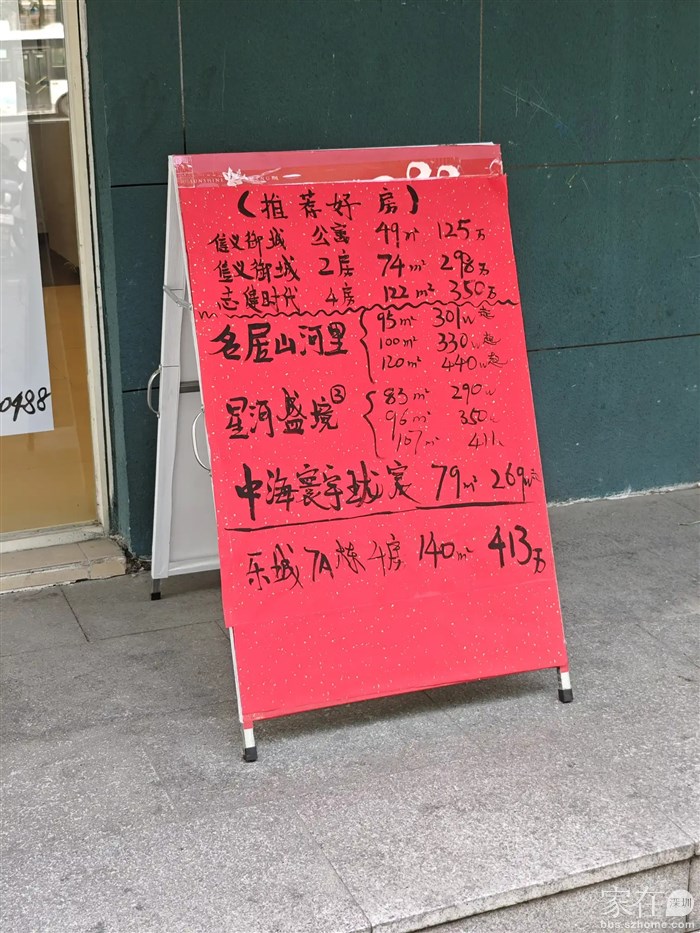 （推荐好房）
信义御城 公寓 49㎡ 125万
信义御城 2房 74m² 298万
志健时代 4房 122m² 350万
名居山河里 95m² 301w起
100m² 330w起
120m² 440w起
星河盛境③ 83m² 290w
96m² 350w
107m² 411w
中海寰宇珑宸 79m² 269w起
乐城7A栋4房 140m² 413万
0488
家在深圳
bbs.szhome.com